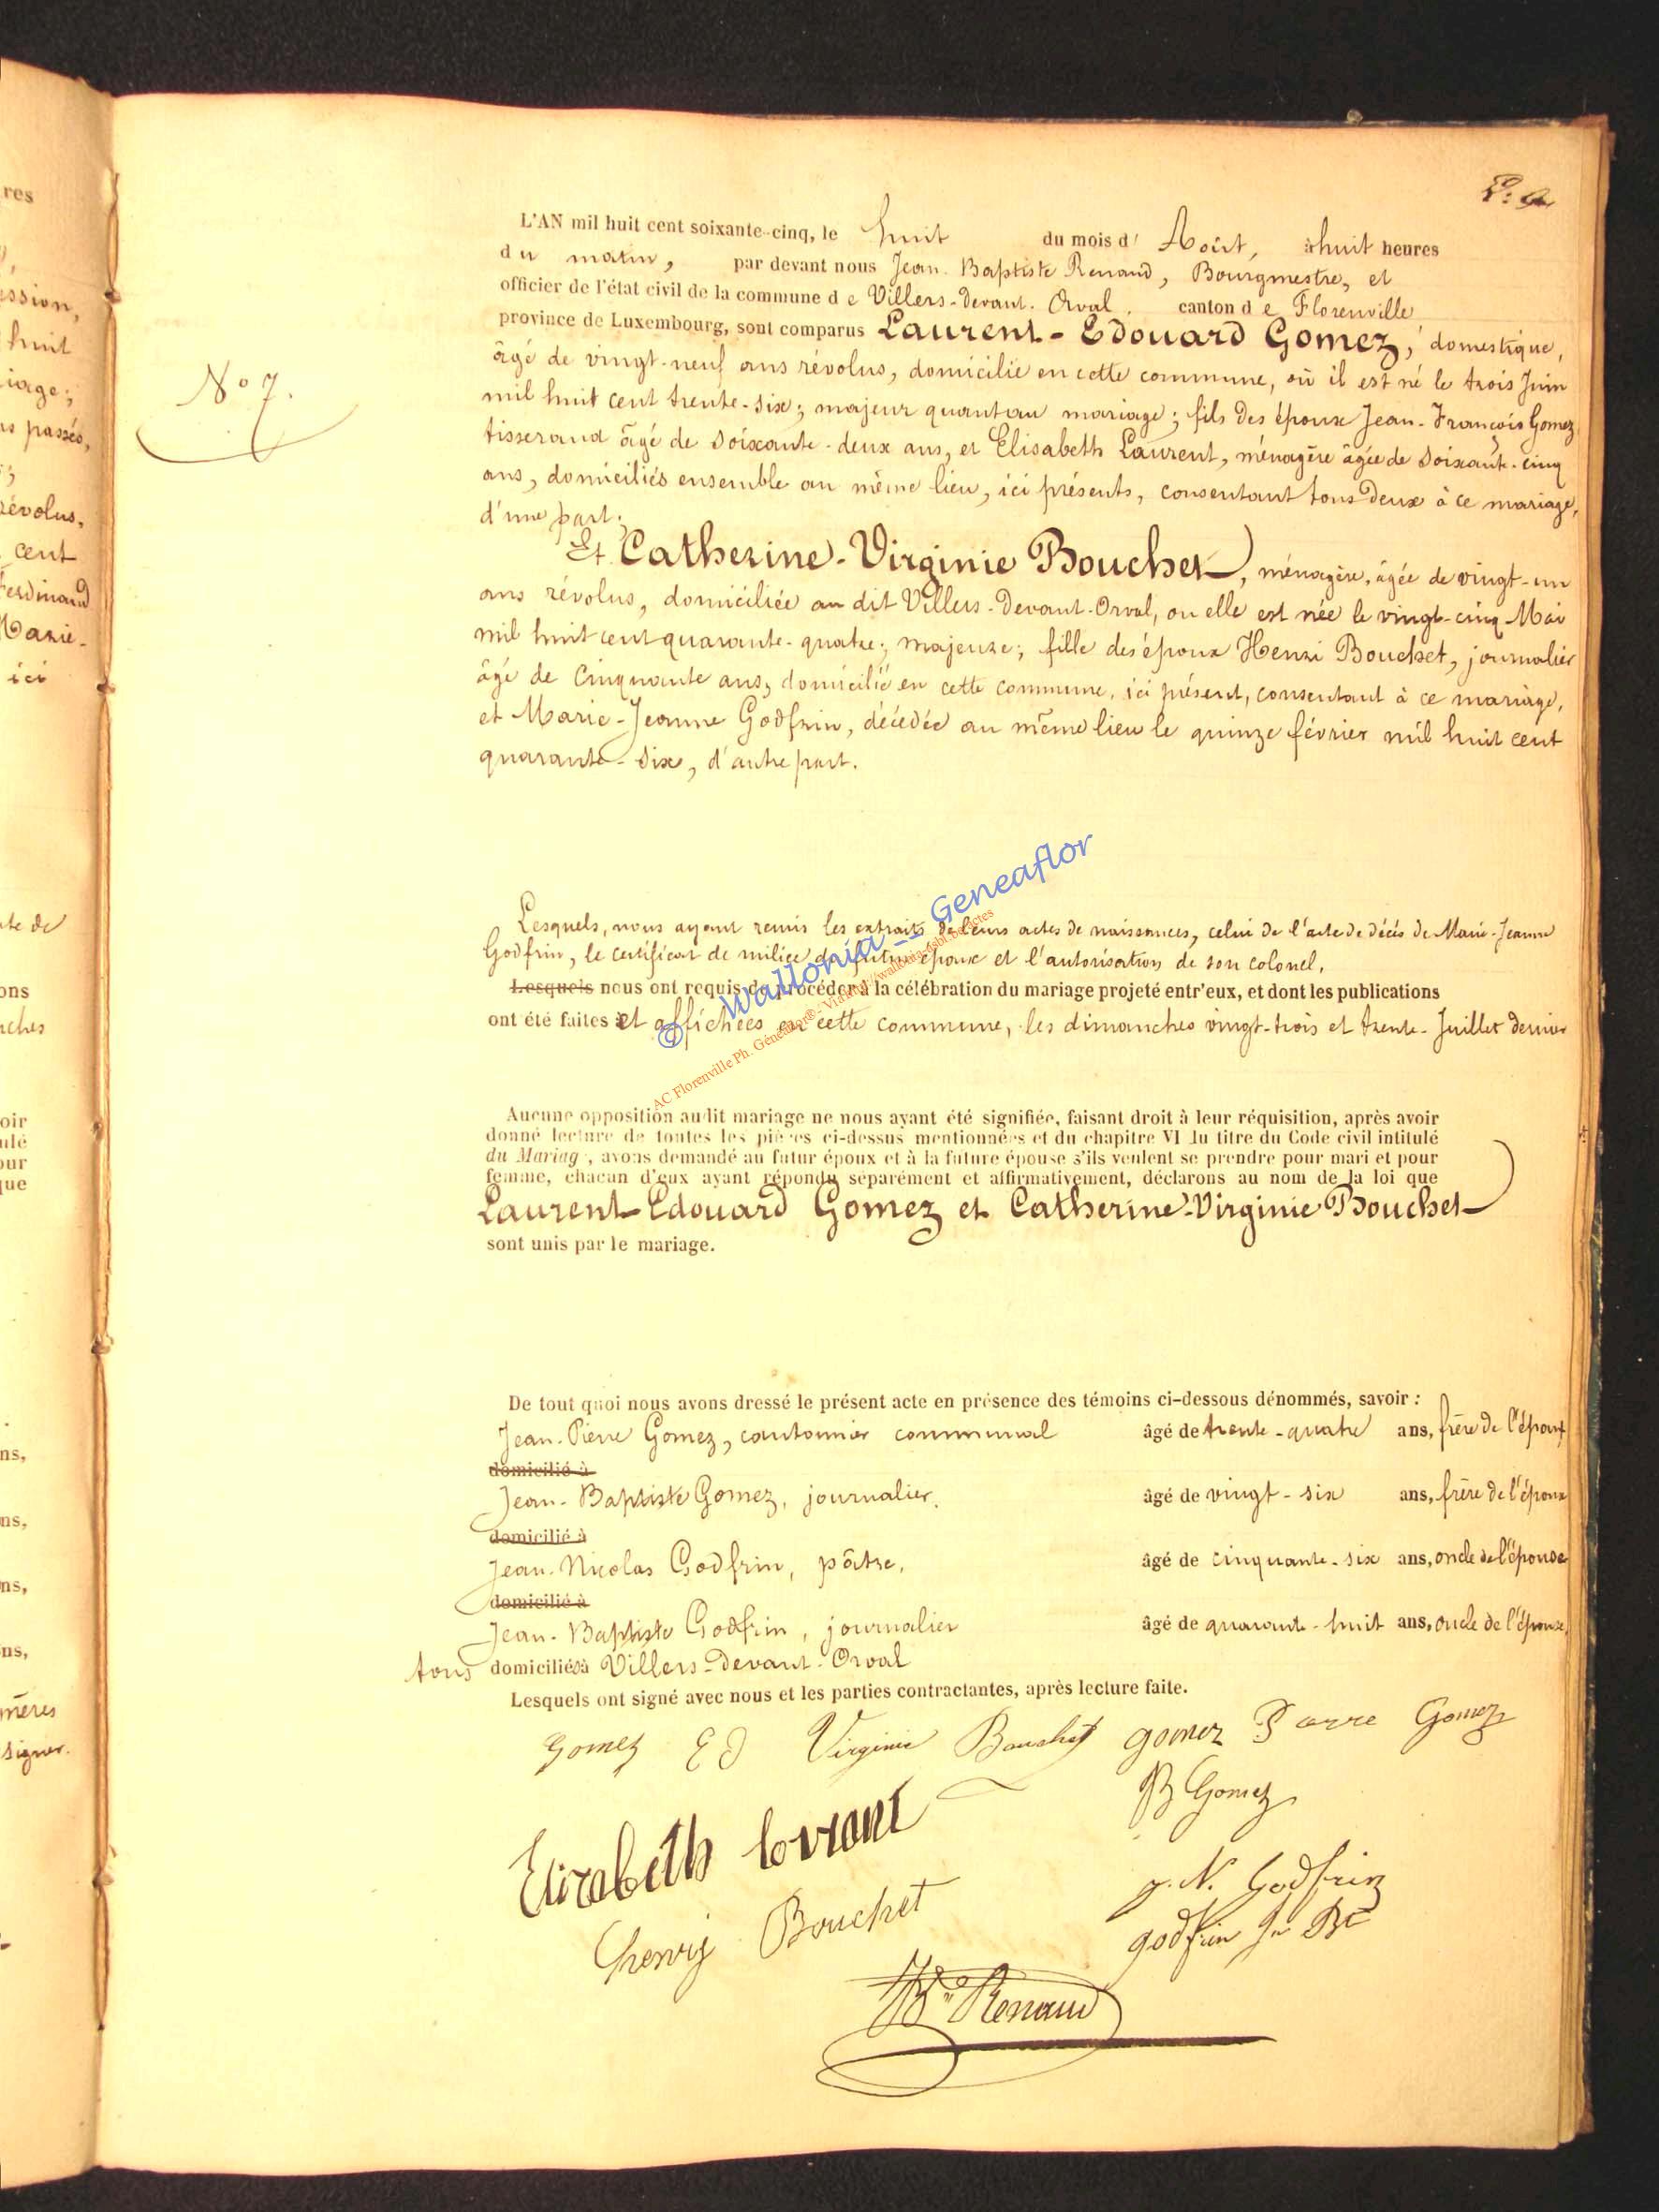 res
ession,
huit
iage;
ns passés,
révolus,
cent
Ferdinand
Marie-
ici
ate de
ons
nches
oir
ulé
our
que
ns,
ns,
ns,
ns,
mères
signer.
L'AN mil huit cent soixante-cinq, le huit du mois d' Août, à huit heures
du matin, par devant nous Jean-Baptiste Renaud, Bourgmestre, et
officier de l'état civil de la commune de Villers-devant-Orval, canton de Florenville
province de Luxembourg, sont comparus Laurent-Edouard Gomez, domestique,
âgé de vingt-neuf ans révolus, domicilié en cette commune, où il est né le trois Juin
N° 7.
mil huit cent trente-six; majeur quant au mariage; fils des époux Jean-François Gomez
tisserand âgé de soixante-deux ans, et Elisabeth Laurent, ménagère âgée de soixante-cinq
ans, domiciliés ensemble au même lieu, ici présents, consentant tous deux à ce mariage,
d'une part.
Et Catherine-Virginie Bouchet, ménagère, âgée de vingt-un
ans révolus, domiciliée au dit Villers-devant-Orval, ou elle est née le vingt-cinq Mai
mil huit cent quarante-quatre; majeure; fille des époux Henri Bouchet, journalier
âgé de cinquante ans, domicilié en cette commune, ici présent, consentant à ce mariage,
et Marie-Jeanne Godfrin, décédée au même lieu le quinze février mil huit cent
quarante-six, d'autre part.
© Wallonia__Geneaflor
AC Florenville Ph. Généaflor®
Lesquels, nous ayant remis les extraits de leurs actes de naissances, celui de l'acte de décès de Marie-Jeanne
Godfrin, le certificat de milice du futur époux et l'autorisation de son colonel,
Lesquels nous ont requis de procéder à la célébration du mariage projeté entr'eux, et dont les publications
ont été faites et affichées en cette commune, les dimanches vingt-trois et trente-Juillet dernier
Aucune opposition audit mariage ne nous ayant été signifiée, faisant droit à leur réquisition, après avoir
donné lecture de toutes les pièces ci-dessus mentionnées et du chapitre VI du titre du Code civil intitulé
du Mariage, avons demandé au futur époux et à la future épouse s'ils veulent se prendre pour mari et pour
femme, chacun d'eux ayant répondu séparément et affirmativement, déclarons au nom de la loi que
Laurent-Edouard Gomez et Catherine-Virginie Bouchet
sont unis par le mariage.
De tout quoi nous avons dressé le présent acte en présence des témoins ci-dessous dénommés, savoir :
Jean-Pierre Gomez, cantonnier communal âgé de trente-quatre ans, frère de l'époux
domicilié à
Jean-Baptiste Gomez, journalier, âgé de vingt-six ans, frère de l'époux
domicilié à
Jean-Nicolas Godfrin, pâtre, âgé de cinquante-six ans, oncle de l'épouse
domicilié à
Jean-Baptiste Godfrin, journalier âgé de quarante-huit ans, oncle de l'épouse,
tous domiciliés à Villers-devant-Orval
Lesquels ont signé avec nous et les parties contractantes, après lecture faite.
Gomez Ed Virginie Bouchet gomez Gomez
B Gomez
Elizabeth lorant
j. N. Godfrin
Bouchet
godfrin Jn Bte
Renaud